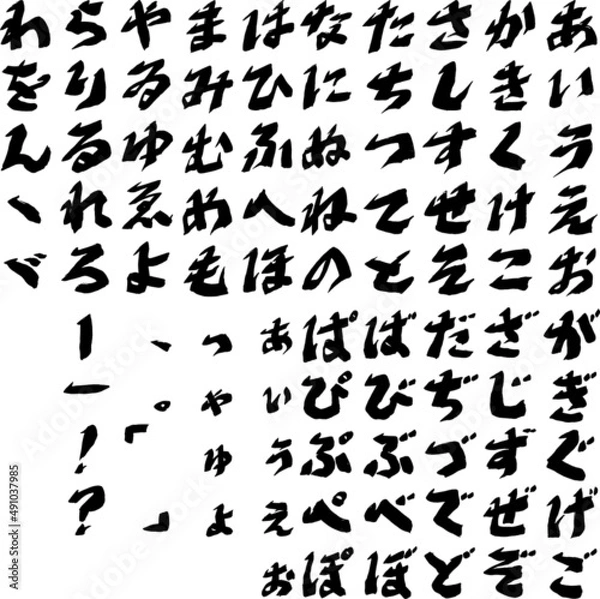 あいうえお
かきくけこ
さしすせそ
たちつてと
なにぬねの
はひふへほ
まみむめも
やゐゆゑよ
らりるれろ
わをんヽゞ
がぎぐげご
ざじずぜぞ
だぢづでど
ばびぶべぼ
ぱぴぷぺぽ
ぁぃぅぇぉ
っゃゅょ
、。「」
｜ー！？
Adobe Stock | #491037985